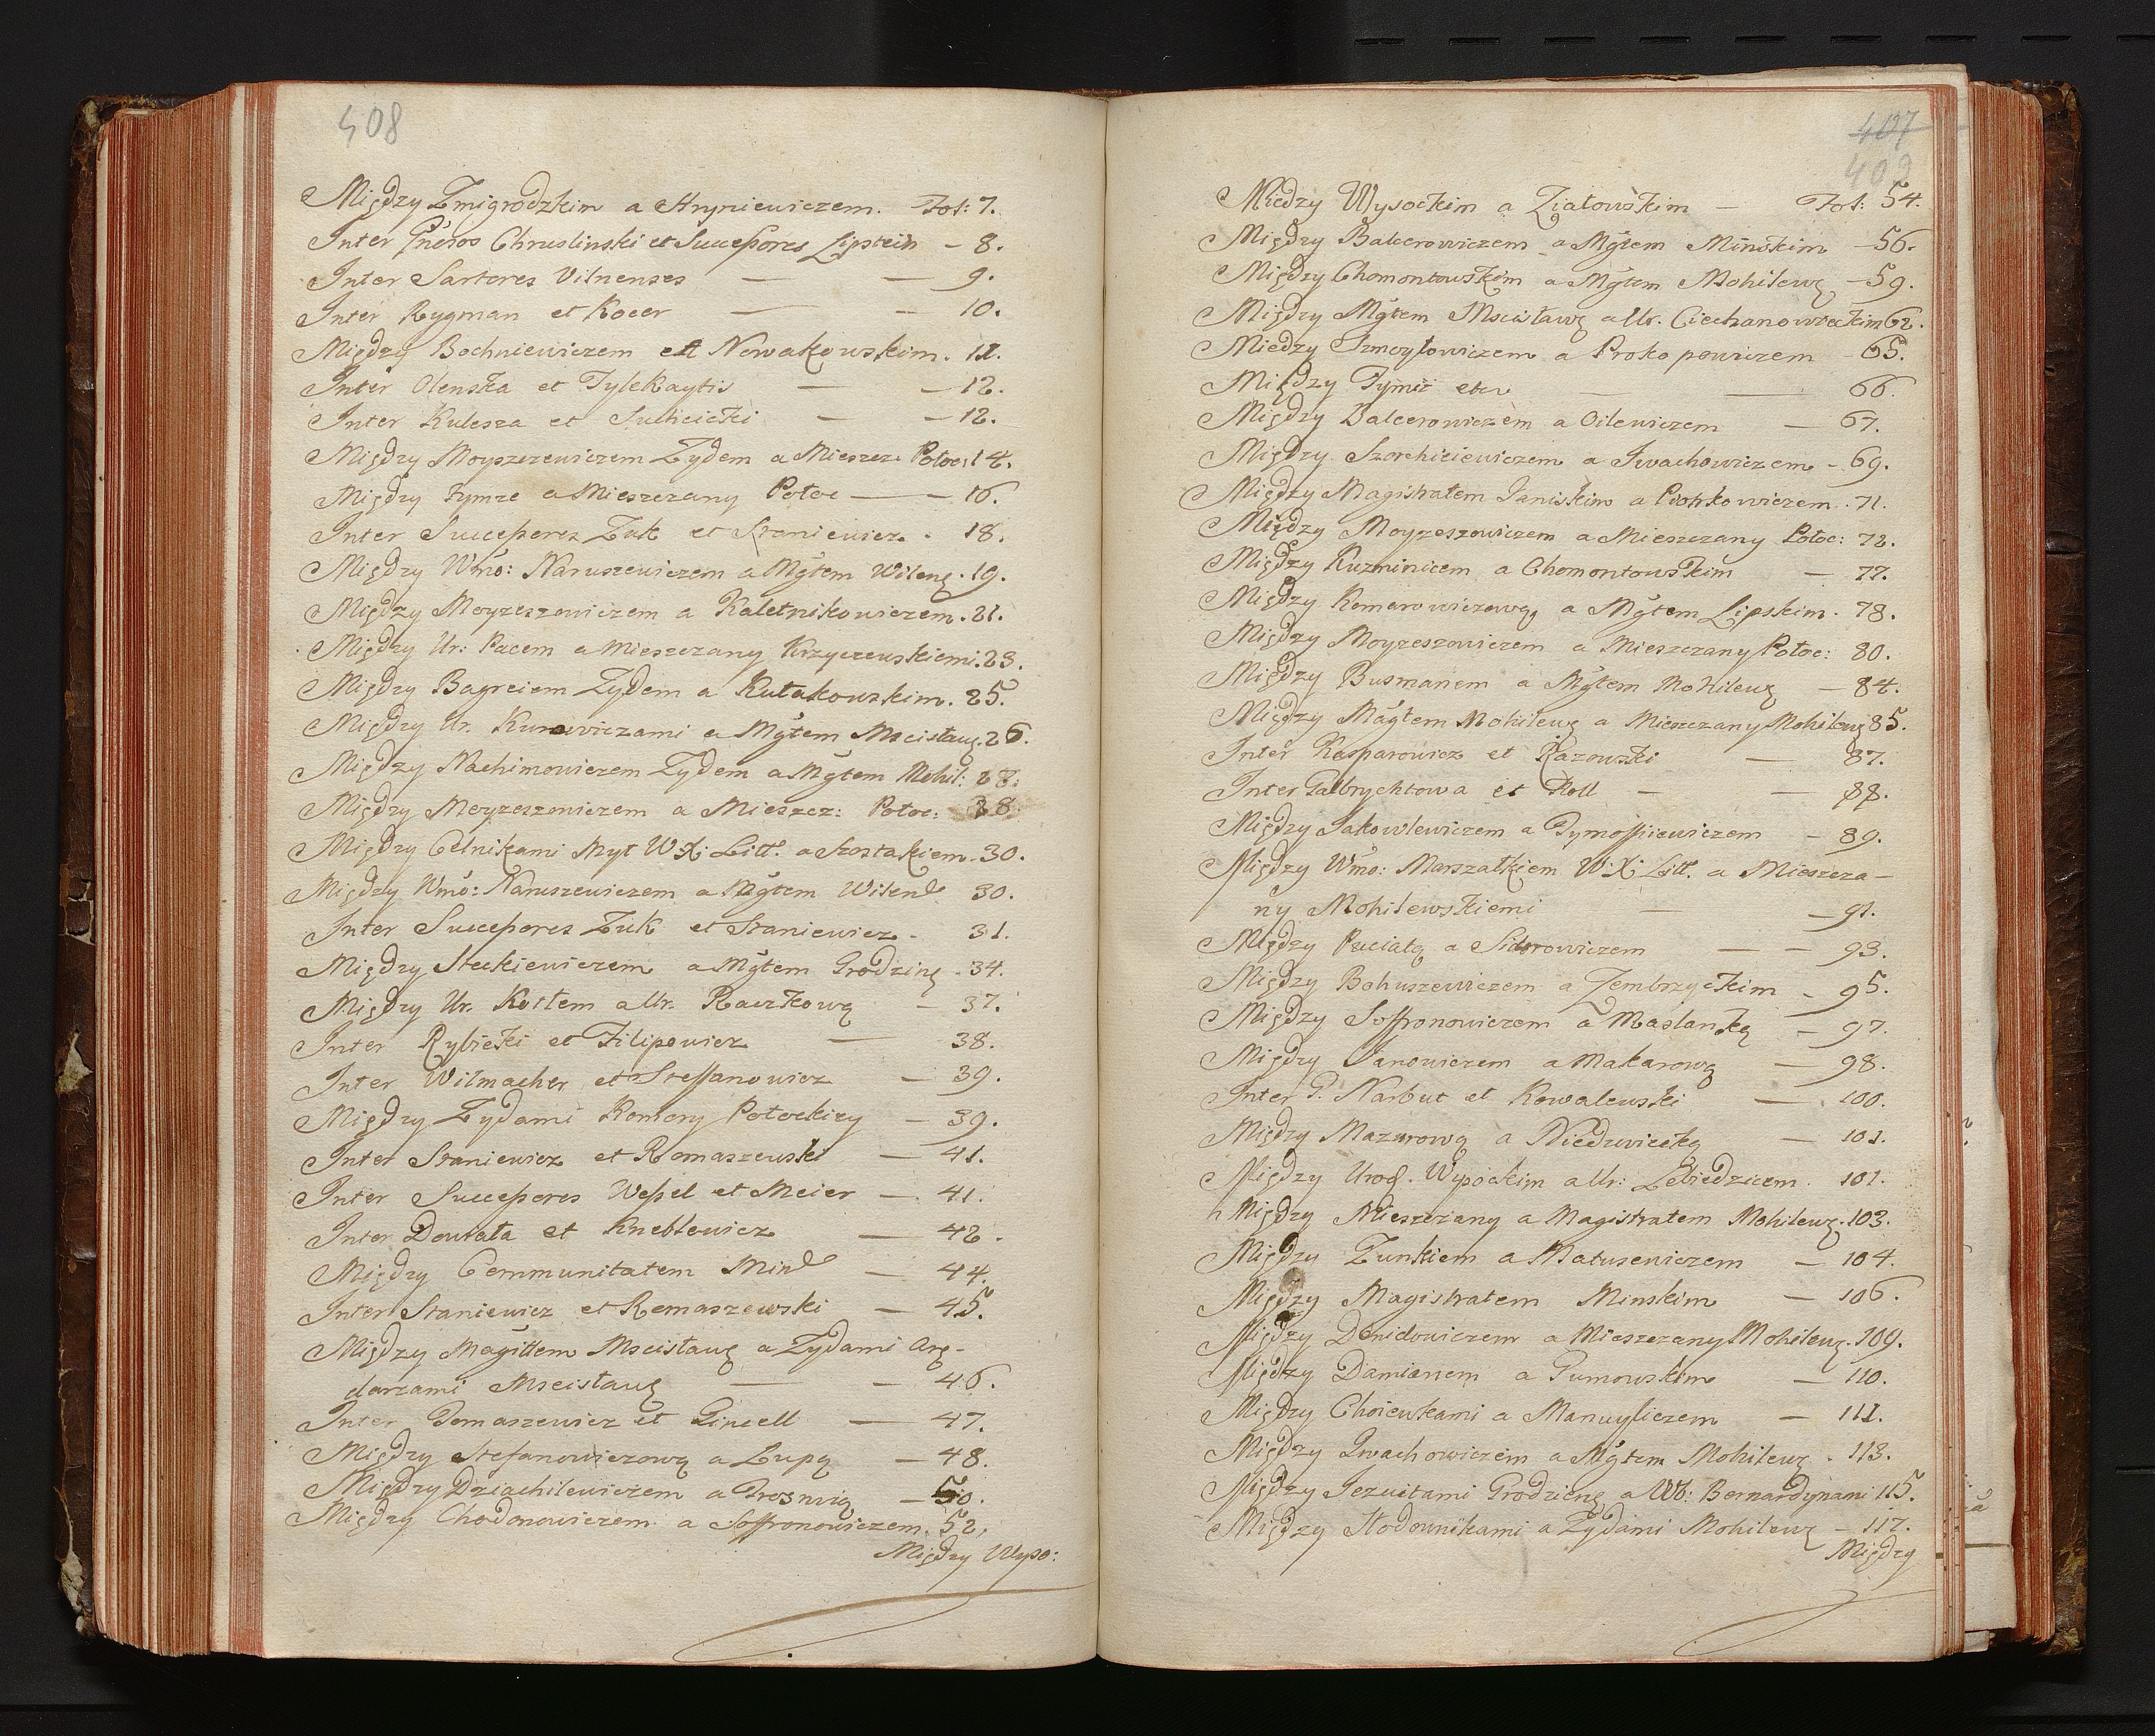 408
Między Zmigrodzkim a Hryniewiczem. Fol: 7.
Inter Gneros Chruslinski et Successores Lipstein – 8.
Inter Sartores Vilnenses — — 9.
Inter Rygman et Kocer — – 10.
Między Bochniewiczem a Nowakowskim. 11.
Inter Olenska et Tylekaytis — – 12.
Inter Kulesza et Suchcicki — – 12.
Między Moyszezewiczem Zydem a Miescz: Połoc: 14.
Między Hymze a Miesczany Połoc — – 16.
Inter Successores Zuk et Staniewicz . 18.
Między Wmo: Naruszewiczem a Mgtem Wileng . 19.
Między Moyzeszowiczem a Kaletnikowiczem . 21.
Między Ur: Pacem a Miesczany Krzyczewskiemi . 23.
Między Bagreiem Zydem a Kułakowskim. 25.
Między Ur. Kurowiczami a Mgtem Mscisławę . 26.
Między Nachimowiczem Zydem a Mgtem Mohil: 27.
Między Moyzeszowiczem a Miescz: Połoc: 28.
Między Celnikami Myt W.X. Litt. a Szostakiem . 30.
Między Wmo: Naruszewiczem a Mgtem Wilend 30.
Inter Successores Zuk et Staniewicz . 31.
Między Steckiewiczem a Mgtem Grodzinę . 34.
Między Ur. Kostem a Ur. Raczkową – 37.
Inter Rybicki et Filipowicz — 38.
Inter Wilmacher et Steffanowicz – 39.
Między Zydami Komory Połockiey – 39.
Inter Staniewicz et Romaszewski — 41.
Inter Successores Wessel et Meier – 41.
Inter Dowiata et Kneblowicz — 42.
Między Communitatem Mind — 44.
Inter Staniewicz et Romaszewski — 45.
Między Magittem Mscisławę a Zydami Arę-
darzami Mscisławę — – 46.
Inter Tomaszewicz et Gincell — 47.
Między Stefanowiczową a Łupą – 48.
Między Dziachilewiczem a – 50.
Między Chodonowiczem a Soffronowiczem . 52.
Między Wyso:
407
409
Między Wysockim a Ziatowskim – Fol: 54.
Między Balcerowiczem a Mgtem Mińskim – 56.
Między Chomontowskim a Mgtem Mohilewę – 59.
Między Mgtem Mscisławę a Ur. Ciechanowieckim 62.
Między Izmoyłowiczem a Prokopowiczem – 65.
Między Tymiż etc — — 66.
Między Balcerowiczem a Oilewiczem – 67.
Między Szorchiciewiczem a Iwachowiczem – 69.
Między Magistratem Janiskim a Piotrkowiczem . 71.
Między Moyzeszowiczem a Miesczany Połoc: 72.
Między Kuzminicem a Chomontowskim — 77.
Między Komorowiczową a Mgtem Lipskim . 78.
Między Moyzeszowiczem a Miesczany Połoc: 80.
Między Busmanem a Mgtem Mohilewę – 84.
Między Magtem Mohilewę a Miesczany Mohilewę 85.
Inter Kasparowicz et Razowski — 87.
Inter Galbrychtowa et Roll – – 88.
Między Jakowlewiczem a Tymoffiiewiczem – 89.
Między Wmo: Marszałkiem W.X. Litt. a Miescza-
ny Mohilewskiemi — – 91.
Między Puciatą a Sidorowiczem — – 93.
Między Bohuszewiczem a Zembrzyckim – 95.
Między Soffronowiczem a Maslanką – 97.
Między Janowiczem a Makarową — 98.
Inter G. Narbut et Kowalewski — 100.
Między Mazurową a Niedzwiecką — 101.
Między Urod. Wysockim a Ur: Lebiedzicem . 101.
Między Miesczany a Magistratem Mohilewę . 103.
Między Zunkiem a Matusewiczem — 104.
Między Magistratem Minskim — 106.
Między Denidowiczem a Miesczany Mohilewę . 109.
Między Damianem a Gumowskim — 110.
Między Choiewkami a Manuyliczem — 111.
Między Iwachowiczem a Mgtem Mohilewę . 113.
Między Jezuitami Grodzienę a WW: Bernardynami 115.
Między Słodownikami a Zydami Mohilewę – 117.
Między